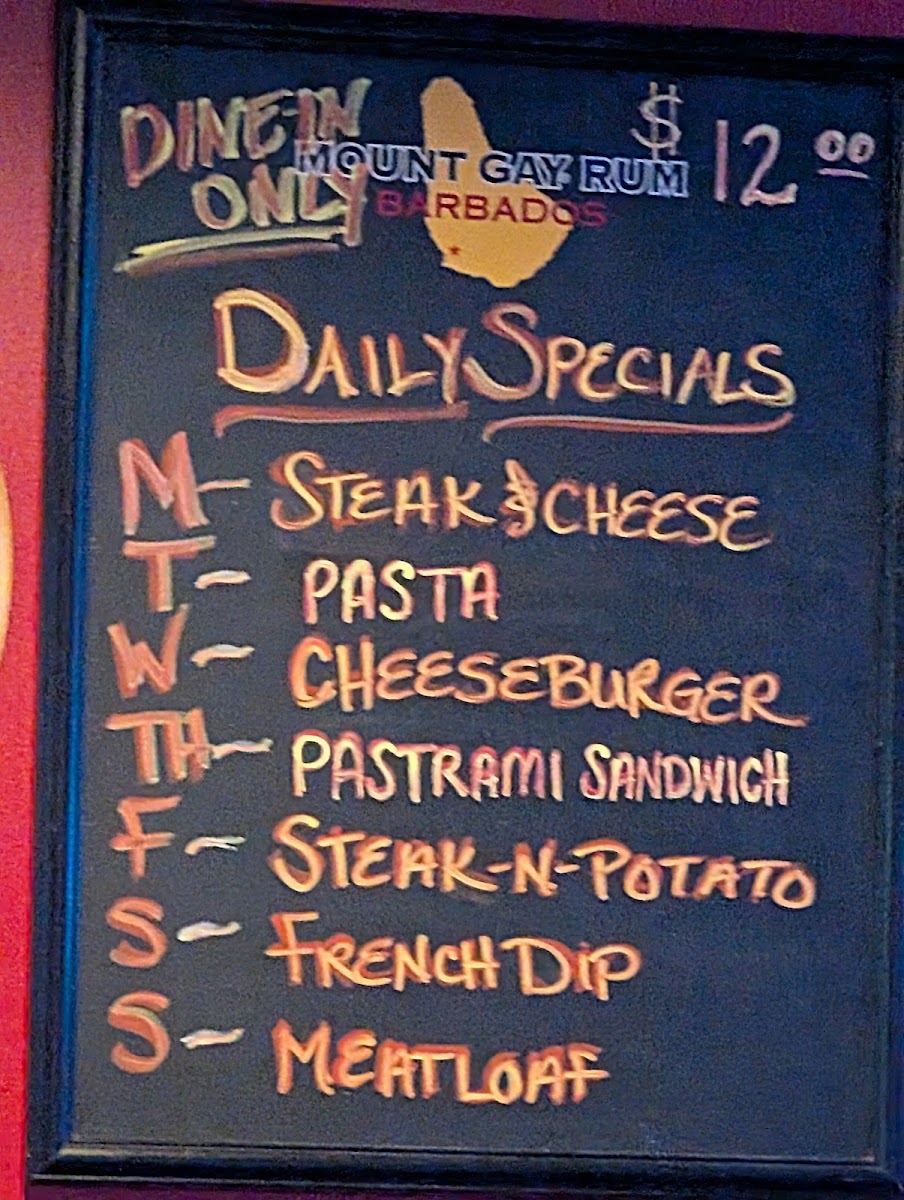 DINE-IN
ONLY
MOUNT GAY RUM
BARBADOS
$12.00
DAILY SPECIALS
M- STEAK & CHEESE
T- PASTA
W- CHEESEBURGER
TH- PASTRAMI SANDWICH
F- STEAK-N-POTATO
S- FRENCH DIP
S- MEATLOAF